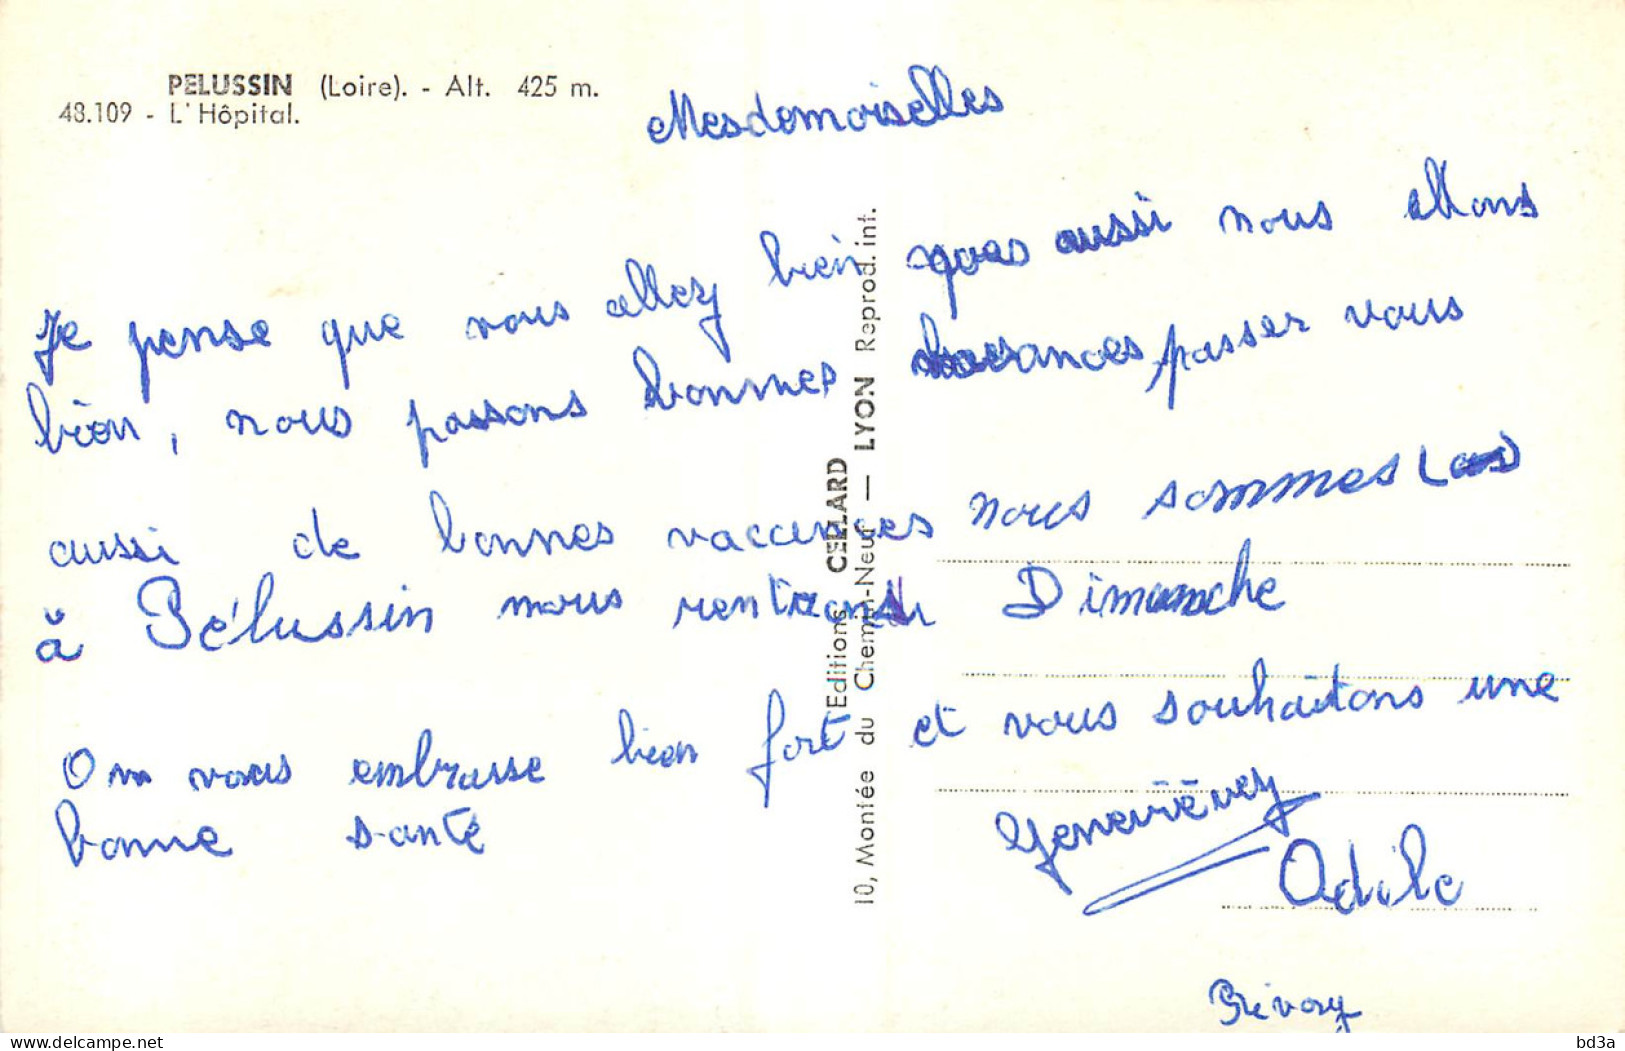 PELUSSIN (Loire). - Alt. 425 m.
48.109 - L'Hôpital.
Mesdemoiselles
Je pense que vous allez bien nous aussi nous allons
bien, nous passons bonnes passer vous
aussi de bonnes vaccences nous sommes
à Pélussin nous rentrons Dimanche
On vous embrasse bien fort et vous souhaitons une
bonne santé
Odile
Editions CELLARD
10, Montée du Chemin-Neuf — LYON Reprod. int.
bd3a